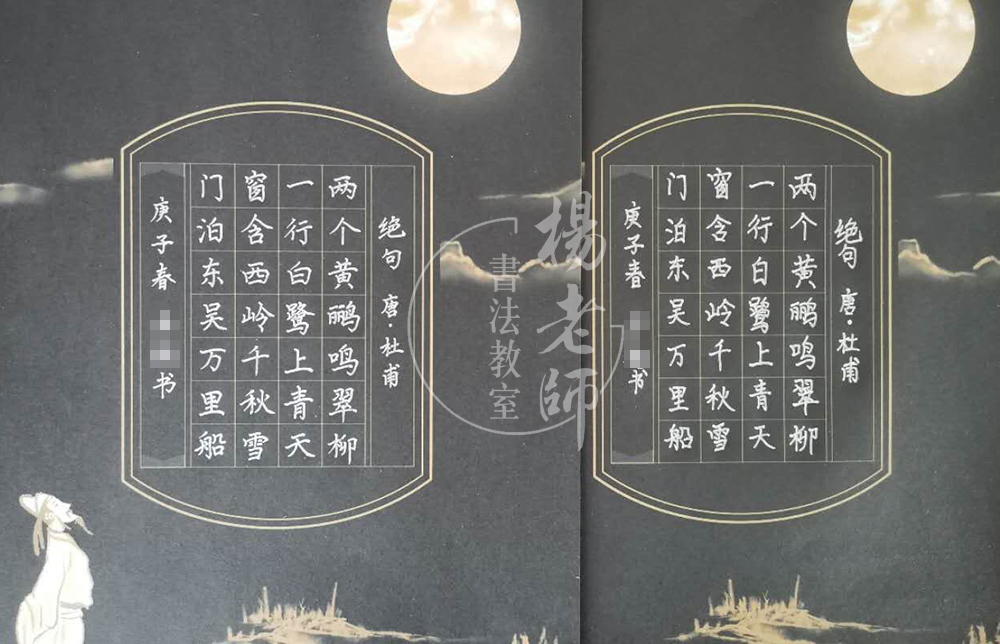 绝句 唐·杜甫
两个黄鹂鸣翠柳
一行白鹭上青天
窗含西岭千秋雪
门泊东吴万里船
庚子春 书
楊老師
「書法教室」
绝句 唐·杜甫
两个黄鹂鸣翠柳
一行白鹭上青天
窗含西岭千秋雪
门泊东吴万里船
庚子春 书